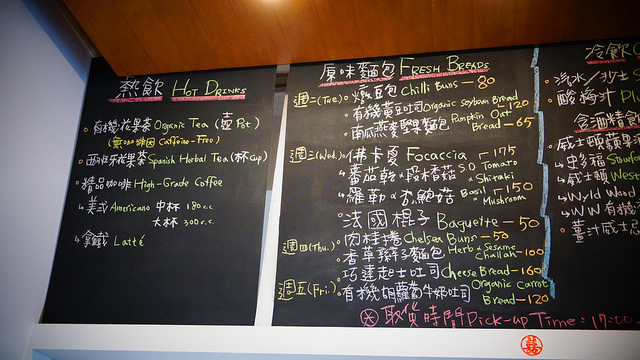 熱飲 Hot Drinks
有機花果茶 Organic Tea (壺 Pot)
(無咖啡因 Caffeine-Free)
西班牙花果茶 Spanish Herbal Tea (杯 Cup)
精品咖啡 High-Grade Coffee
美式 Americano 中杯 180 c.c.
大杯 300 c.c.
拿鐵 Latté
原味麵包 Fresh Breads
週二(Tue.) Chilli Buns — 80
有機黃豆吐司 Organic Soybean Bread — 120
南瓜燕麥堅果麵包 Pumpkin Oat Bread — 65
週三(Wed.) 佛卡夏 Focaccia 175
番茄乾 & 段木香菇 S.D. Tomato & Shiitaki
羅勒 & 杏鮑菇 Basil & Mushroom 150
法國棍子 Baguette — 50
週四(Thu.) 肉桂捲 Chelsea Buns — 50
香草辮子麵包 Herb & Sesame Challah — 100
巧達起士吐司 Cheese Bread — 160
週五(Fri.) 有機胡蘿蔔牛奶吐司 Organic Carrot Bread — 120
※ 取貨時間 Pick-up Time: 17:00
冷飲
汽水/沙士
酸梅汁
含酒精飲
West
Wyld Wood
W.W 有機
薑汁威士忌